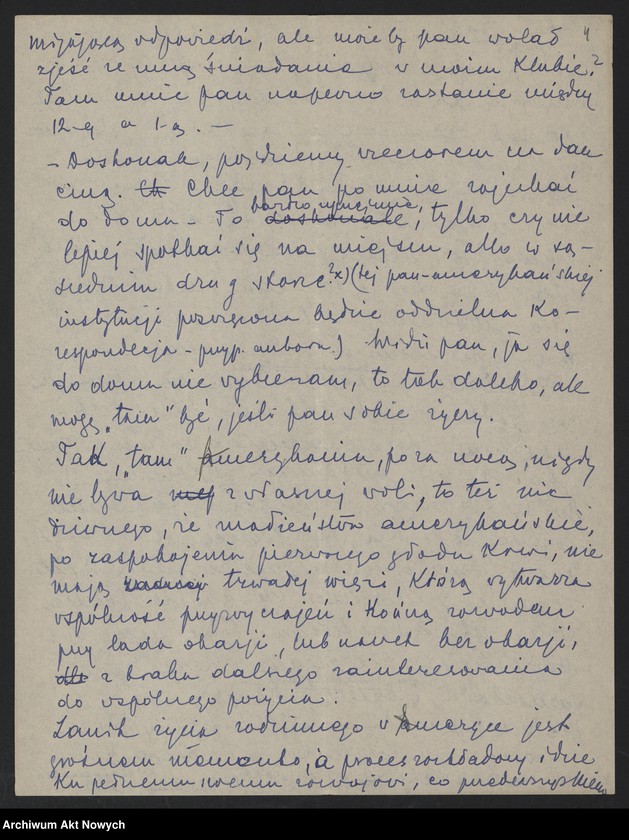 mijającą odpowiedź, ale może by pan wolał 4
zjeść ze mną śniadanie w moim Klubie?
Tam mnie pan napewno zastanie między
12-ą a 1-ą. —
- Doskonale, pojdziemy wieczorem na dan
cing. Chce pan po mnie zajechać
do domu - To bardzo uprzejmie, doskonale, tylko czy nie
lepiej spotkać się na miejscu, albo w są-
siednim drug storze?x) (tej pan-amerykańskiej
instytucji poświęcona będzie oddzielna Ko-
respondecja - przyp. autora.) Widzi pan, ja się
do domu nie wybieram, to tak daleko, ale
mogę "tam" być, jeśli pan sobie życzy.
Tak, "tam" Amerykanin, poza nocą, nigdy
nie bywa z własnej woli, to też nic
dziwnego, że małżeństwa amerykańskie,
po zaspokojeniu pierwszego głodu Krwi, nie
mają trwałej więzi, Którą wytwarza
wspólność przyzwyczajeń i Kończą rozwodem
przy lada okazji, lub nawet bez okazji,
z braku dalszego zainteresowania
do wspólnego pożycia.
Zanik życia rodzinnego w Ameryce jest
groźnem memento, a proces rozkładowy idzie
Ku pełnemu swemu rozwojowi, co przedewszystkiem
Archiwum Akt Nowych